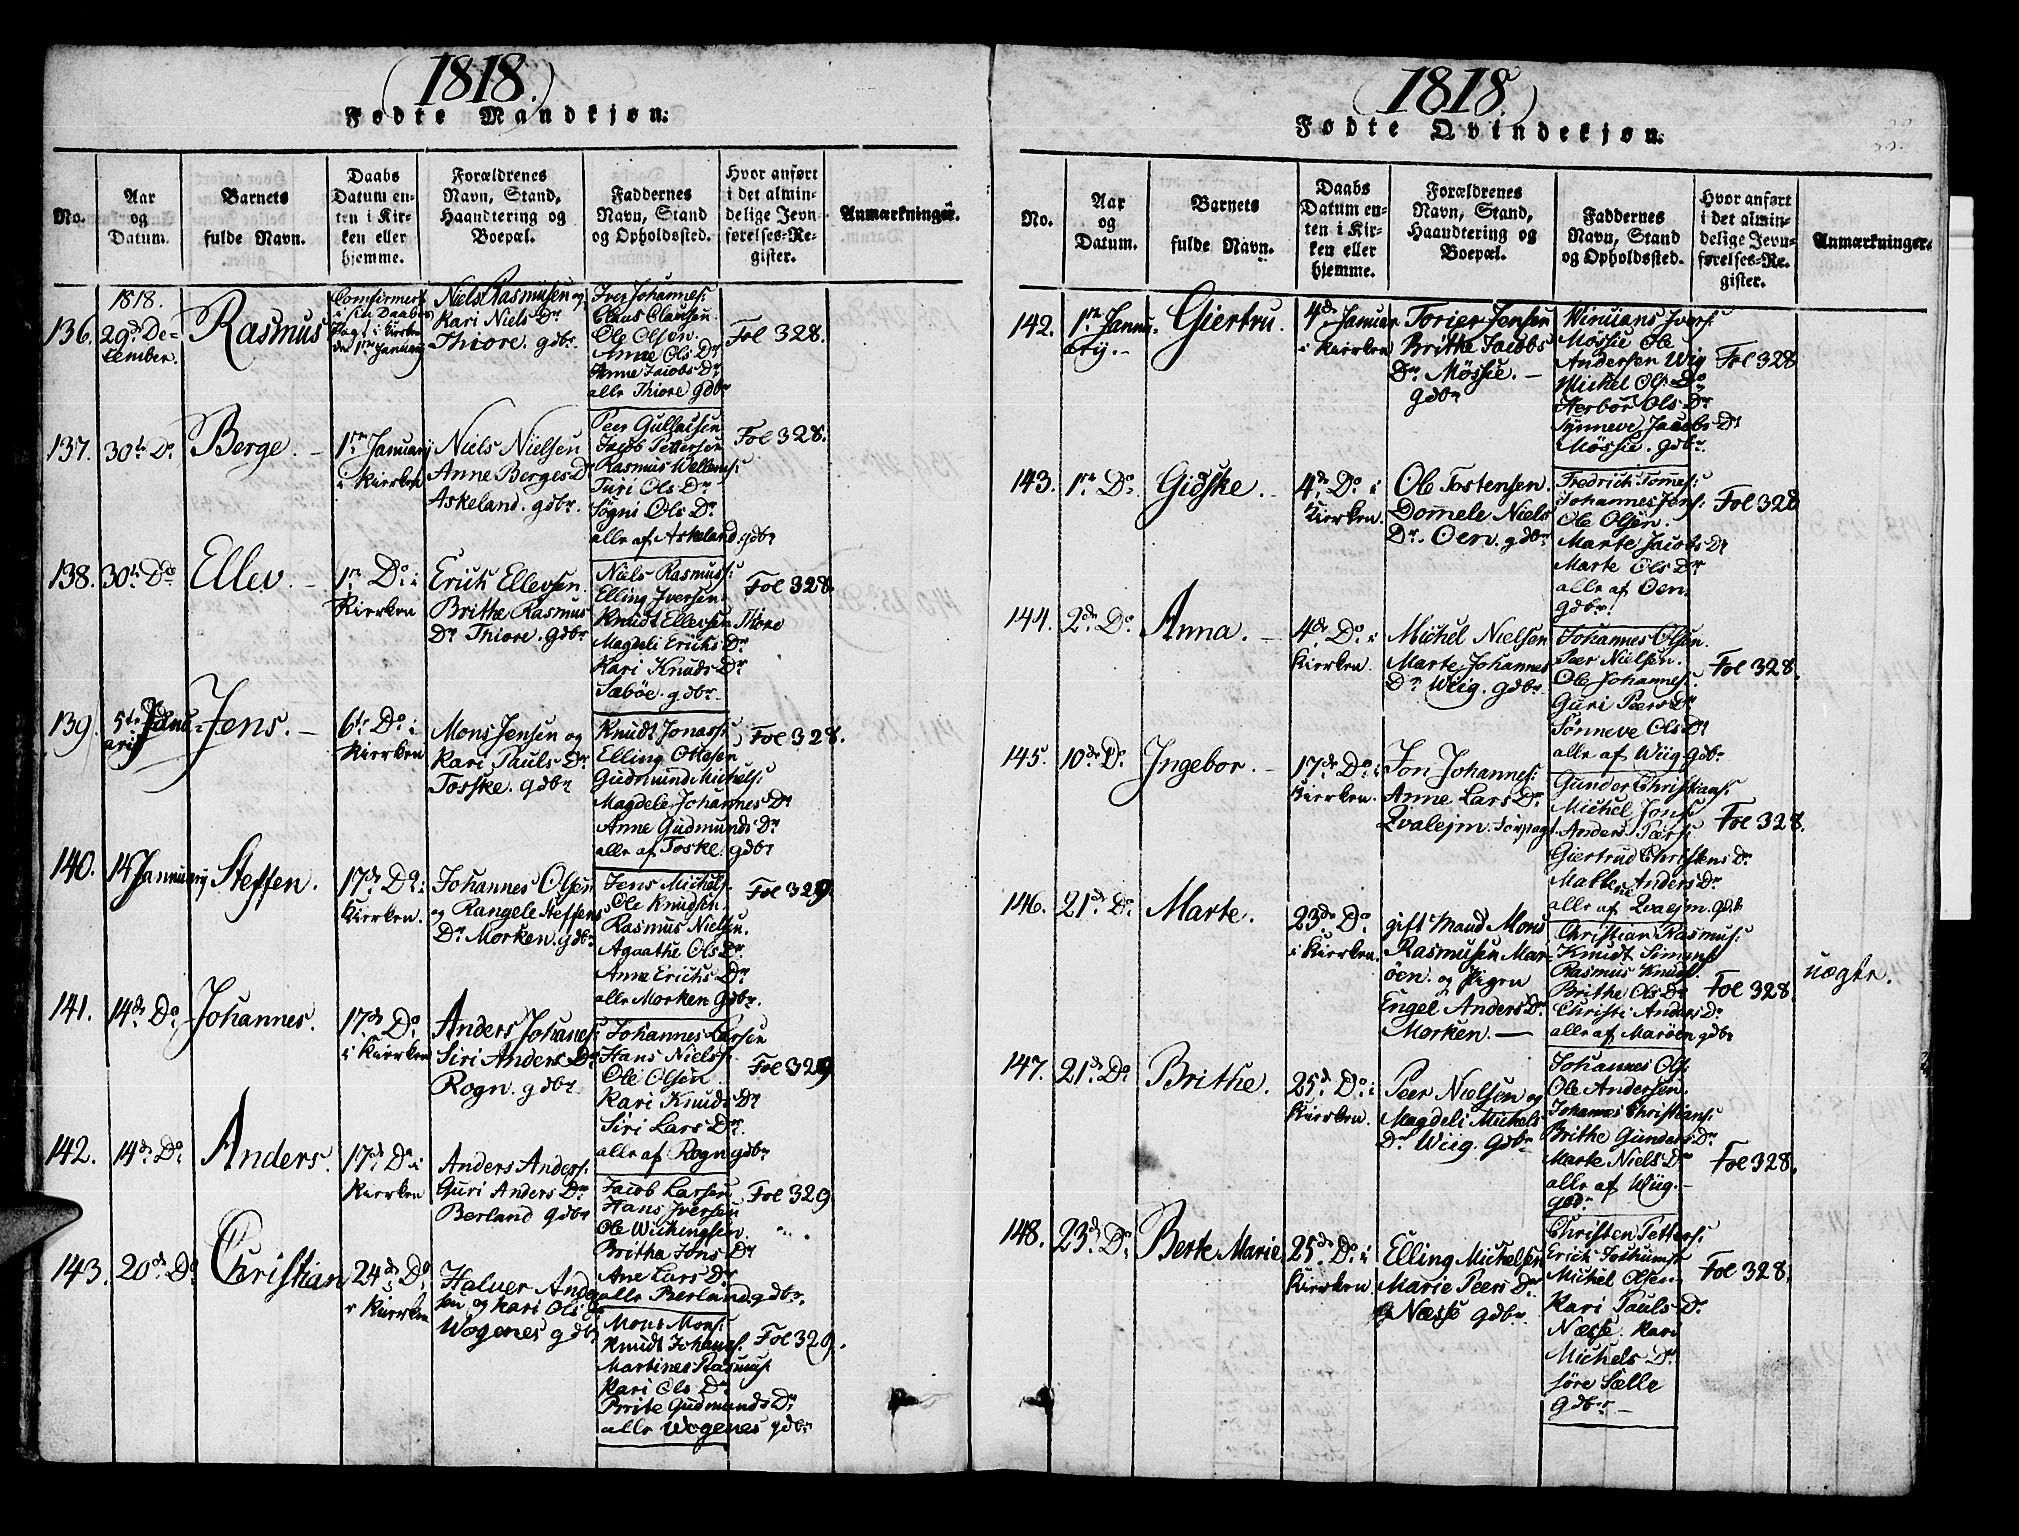 (1818.)
Fødte Mandkjøn.
No.
Aar
og
Datum.
Barnets
fulde Navn.
Daabs
Datum en-
ten i Kir-
ken eller
hjemme.
Forældrenes
Navn, Stand,
Haandtering og
Boepæl.
Faddernes
Navn, Stand
og Opholdssted.
Hvor anført
i det almin-
delige Jevn-
førelses-Re-
gister.
Anmærkninger.
136.
1818.
29de De-
cember.
Rasmus
i sin Daabs
Dag i Kierken
Niels Rasmusen og
Kari Niels Dr
Thiore. gdbr.
Iver Johannes:
Claus Clausen.
Ole Olsen.
Anne Ols Dr
Anne Jacobs Dr
alle Thiore gdbr
Fol 328.
137.
30te Do.
Berge.
1re January
i Kierken
Niels Nielsen
Anne Berges Dr
Askeland. gdbr.
Peer Gullacsen
Jacob Pettersen
Rasmus Wellems:
Turi Ols Dr
Sogni Ols Dr
alle af Askeland. gdbr
Fol 328.
138.
30te Do.
Ellev.
1re Do. i
Kierken
Erich Ellevsen
Brithe Rasmus
Dr Thiore. gdbr
Niels Rasmuss:
Elling Iversen.
Knudt Ellevsen Thiore
Magdeli Erichs Dr
Kari Knuds Dr
Sæbøe. gdbr.
Fol 328
139.
5te Janu-
arij
Jens.
6te Do. i
Kierken
Mons Jensen og
Kari Pauls Dr
Toske. gdbr
Knudt Jonass:
Elling Ottesen
Gudmund Michels:
Magdele Johannes Dr
Anne Gudmunds Dr
alle af Toske. gdbr
Fol 328.
140.
14 January
Steffen.
17de Do. i
Kierken.
Johannes Olsen
og Rangele Steffens
Dr Morken. gdbr
Jens Michels:
Ole Knudsen.
Rasmus Nielsen.
Agaathe Ols Dr
Anne Erichs Dr
alle Morken gdbr.
Fol 329
141.
14de Do.
Johannes.
17de Do.
i Kierken
Anders Johanes:
Siri Anders Dr
Rogn. gdbr
Johannes Larsen
Hans Niels:
Ole Olsen.
Kari Knuds Dr
Siri Lars Dr.
alle af Rogn gdbr
Fol 329
142.
14de Do.
Anders.
17de Do. i
Kierken
Anders Anders:
Guri Anders Dr
Berland gdbr
Jacob Larsen
Hans Iversen
Ole Wichingsen.
Britha Jons Dr
Ane Lars Dr
alle Berland gdbr.
Fol 329.
143.
20de Do
Christian
24de Do.
i Kierken
Halver Ander
sen og Kari Ols Dr
Wogenes gdbr
Mons Mons:
Knudt Johans:
Martines Rasmus:
Kari Ols Dr
Brite Gudmunds Dr
alle Wogenes gdbr
Fol 329.
(1818.)
Fødte Qvindekjøn.
No.
Aar
og
Datum.
Barnets
fulde Navn.
Daabs
Datum en-
ten i Kir-
ken eller
hjemme.
Forældrenes
Navn, Stand,
Haandtering og
Boepæl.
Faddernes
Navn, Stand
og Opholdssted.
Hvor anført
i det almin-
delige Jevn-
førelses-Re-
gister.
Anmærkninger.
142.
1re Janu-
arij.
Giertru.
4de Januar
i Kierken
Torier Jensen
Brithe Jacobs
Dr Møssie.
gdbr
Møssie Ole
Andersen Wiig
Michel Ols Dr
Herbor Ols Dr
Synneve Jacobs Dr
Møssie. gdbr.
Fol 328
143.
1re Do.
Gidske.
4de Do. i
Kierken.
Ole Tostensen
Domele Niels
Dr. Oen. gdbr
Fredrich Tomes:
Johannes Jens:
Ole Olsen.
Marte Jacobs Dr
Marte Ols Dr
alle af Oen.
gdbr.
Fol 328
144.
2de Do.
Anna.
4de Do. i
Kierken.
Michel Nielsen
Marte Johannes
Dr Wiig. gdbr
Johannes Olsen.
Pær Nielsen.
Ole Johannes:
Guri Pærs Dr
Sønneve Ols Dr
alle af Wiig gdbr
Fol 328.
145.
10de Do.
Ingebor.
17de Do. i
Kierken.
Jon Johannes:
Anne Lars Dr.
Qvalejm.
Gunder Christians:
Michel Jons:
Anders Pærs:
Giertrud Christens Dr.
Malene Anders Dr
alle af Qvalejm. gdb
Fol 328.
146.
21de Do.
Marte.
23de Do
i Kierken.
gift Mand Mons
Rasmusen Mar-
øen. og Pigen
Engel Anders Dr.
Morken.
Christian Rasmus:
Knudt Simons:
Rasmus Knuds:
Brithe Ols Dr
Christi Anders Dr
alle af Marøen gdbr
Fol 328.
uægte.
147.
21de Do
Brithe.
25de Do. i
Kierken.
Peer Nielsen og
Magdeli Michels
Dr Wiig. gdbr.
Johannes Ols:
Ole Andersen.
Johannes Christians:
Brithe Gunders Dr
Marte Niels Dr
alle af Wiig.
gbdr.
Fol 328.
148.
23de Do.
Berte Marie
25de Do. i
Kierken.
Elling Michelsen
Marie Peers Dr
Næsse gdbr.
Christen Petters:
Erich Jochums:
Michel Olsen
Kari Pauls Dr.
Næsse. Kari
Michels Dr.
søre Sælle
gdbr.
Fol 328.